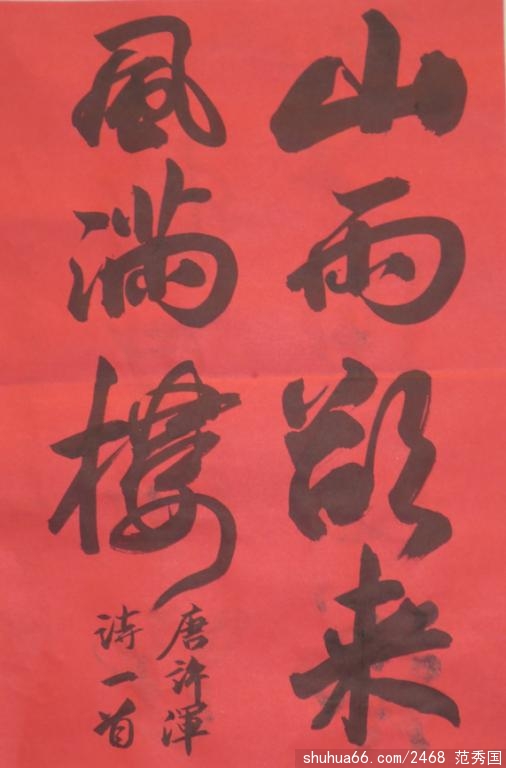 山雨欲来
風满樓
唐许渾
诗一首
shuhua66.com/2468 范秀国